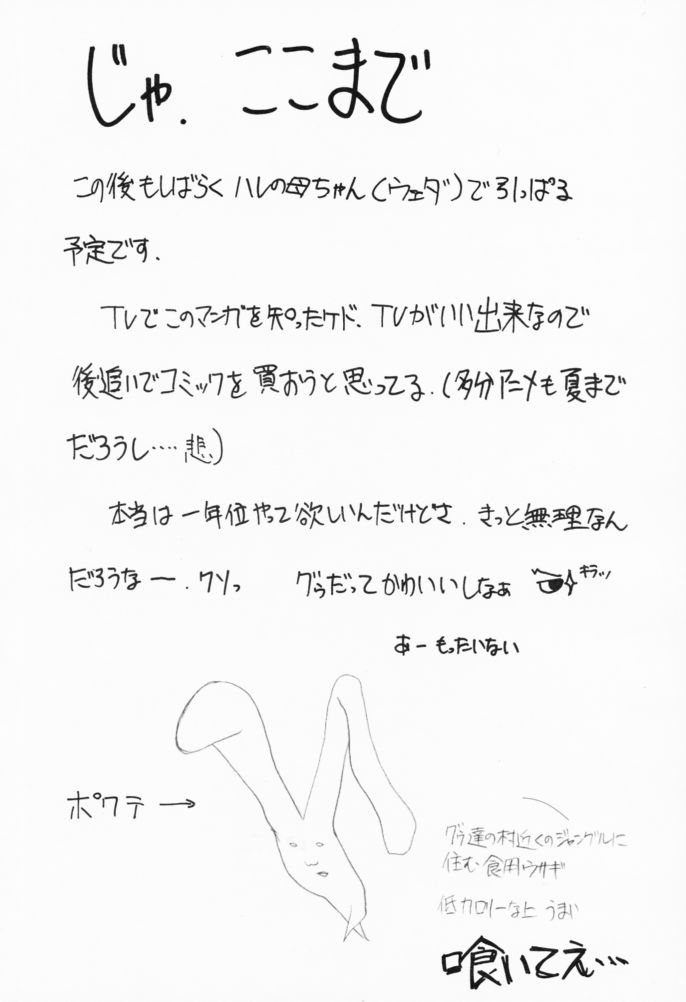 じゃ. ここまで
この後もしばらく ハレの母ちゃん(ウェダ)で引っぱる
予定です.
TVでこのマンガを知ったケド、TVがいい出来なので
後追いでコミックを買おうと思ってる.(多分アニメも夏まで
だろうし…. 悲)
本当は一年位やって欲しいんだけどさ. きっと無理なん
だろうなー. クソっ グゥだってかわいいしなぁ キラッ
あー もったいない
ポクテ →
グゥ達の村近くのジャングルに
住む食用ウサギ
低カロリーな上 うまい
喰いてえ…